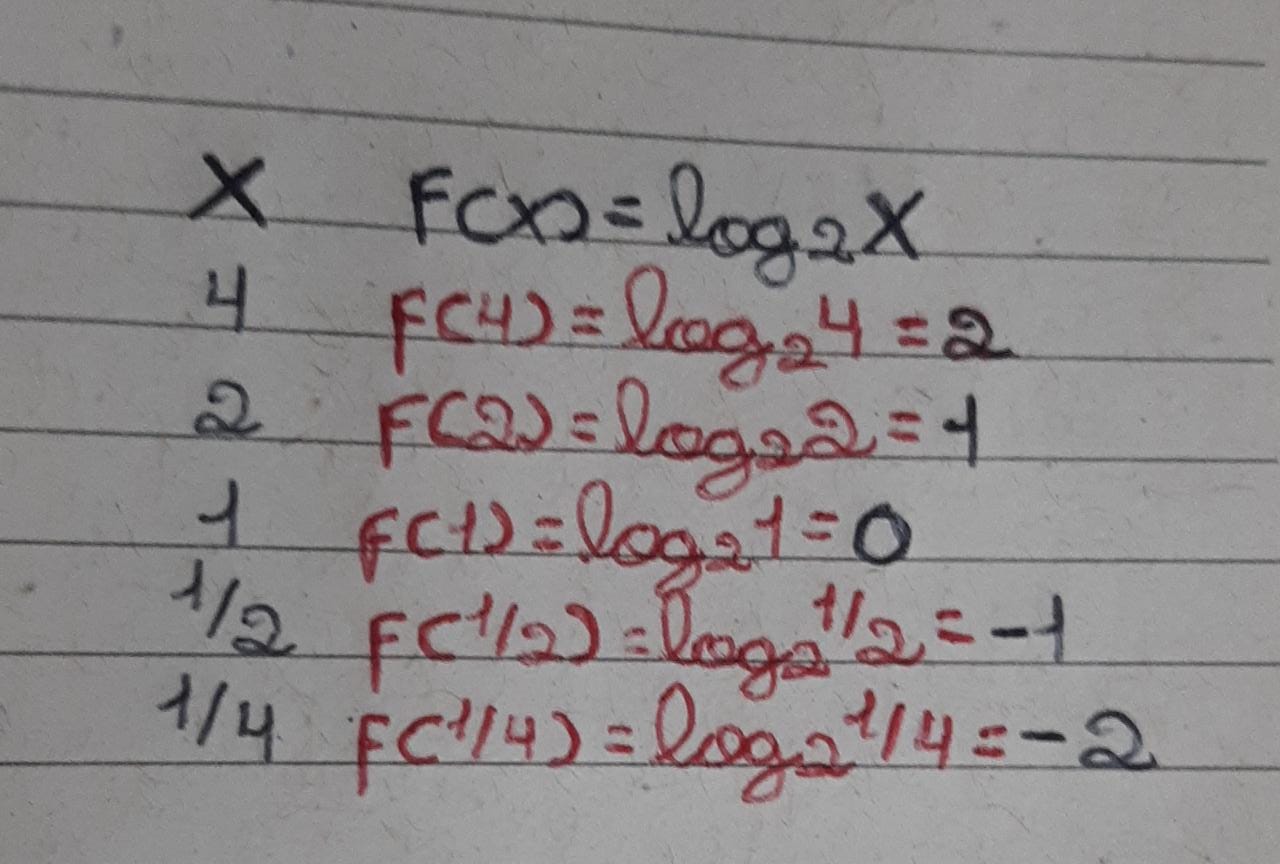 X F(x) = log₂X
4 F(4) = log₂4 = 2
2 F(2) = log₂2 = 1
1 F(1) = log₂1 = 0
1/2 F(1/2) = log₂1/2 = -1
1/4 F(1/4) = log₂1/4 = -2